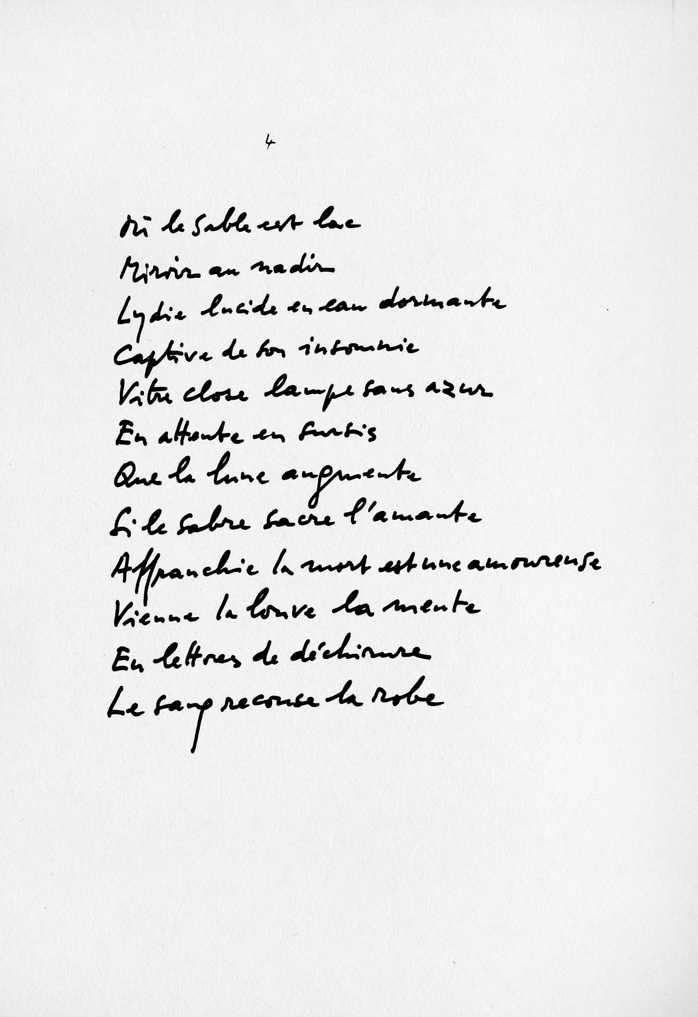 4
Où le sable est lac
Miroir au nadir
Lydie lucide en eau dormante
Captive de son insomnie
Vitre close lampe sans azur
En attente en sursis
Que la lune augmente
Si le sabre sacre l'amante
Affranchie la mort est une amoureuse
Vienne la louve la mente
En lettres de déchirure
Le sang recouse la robe